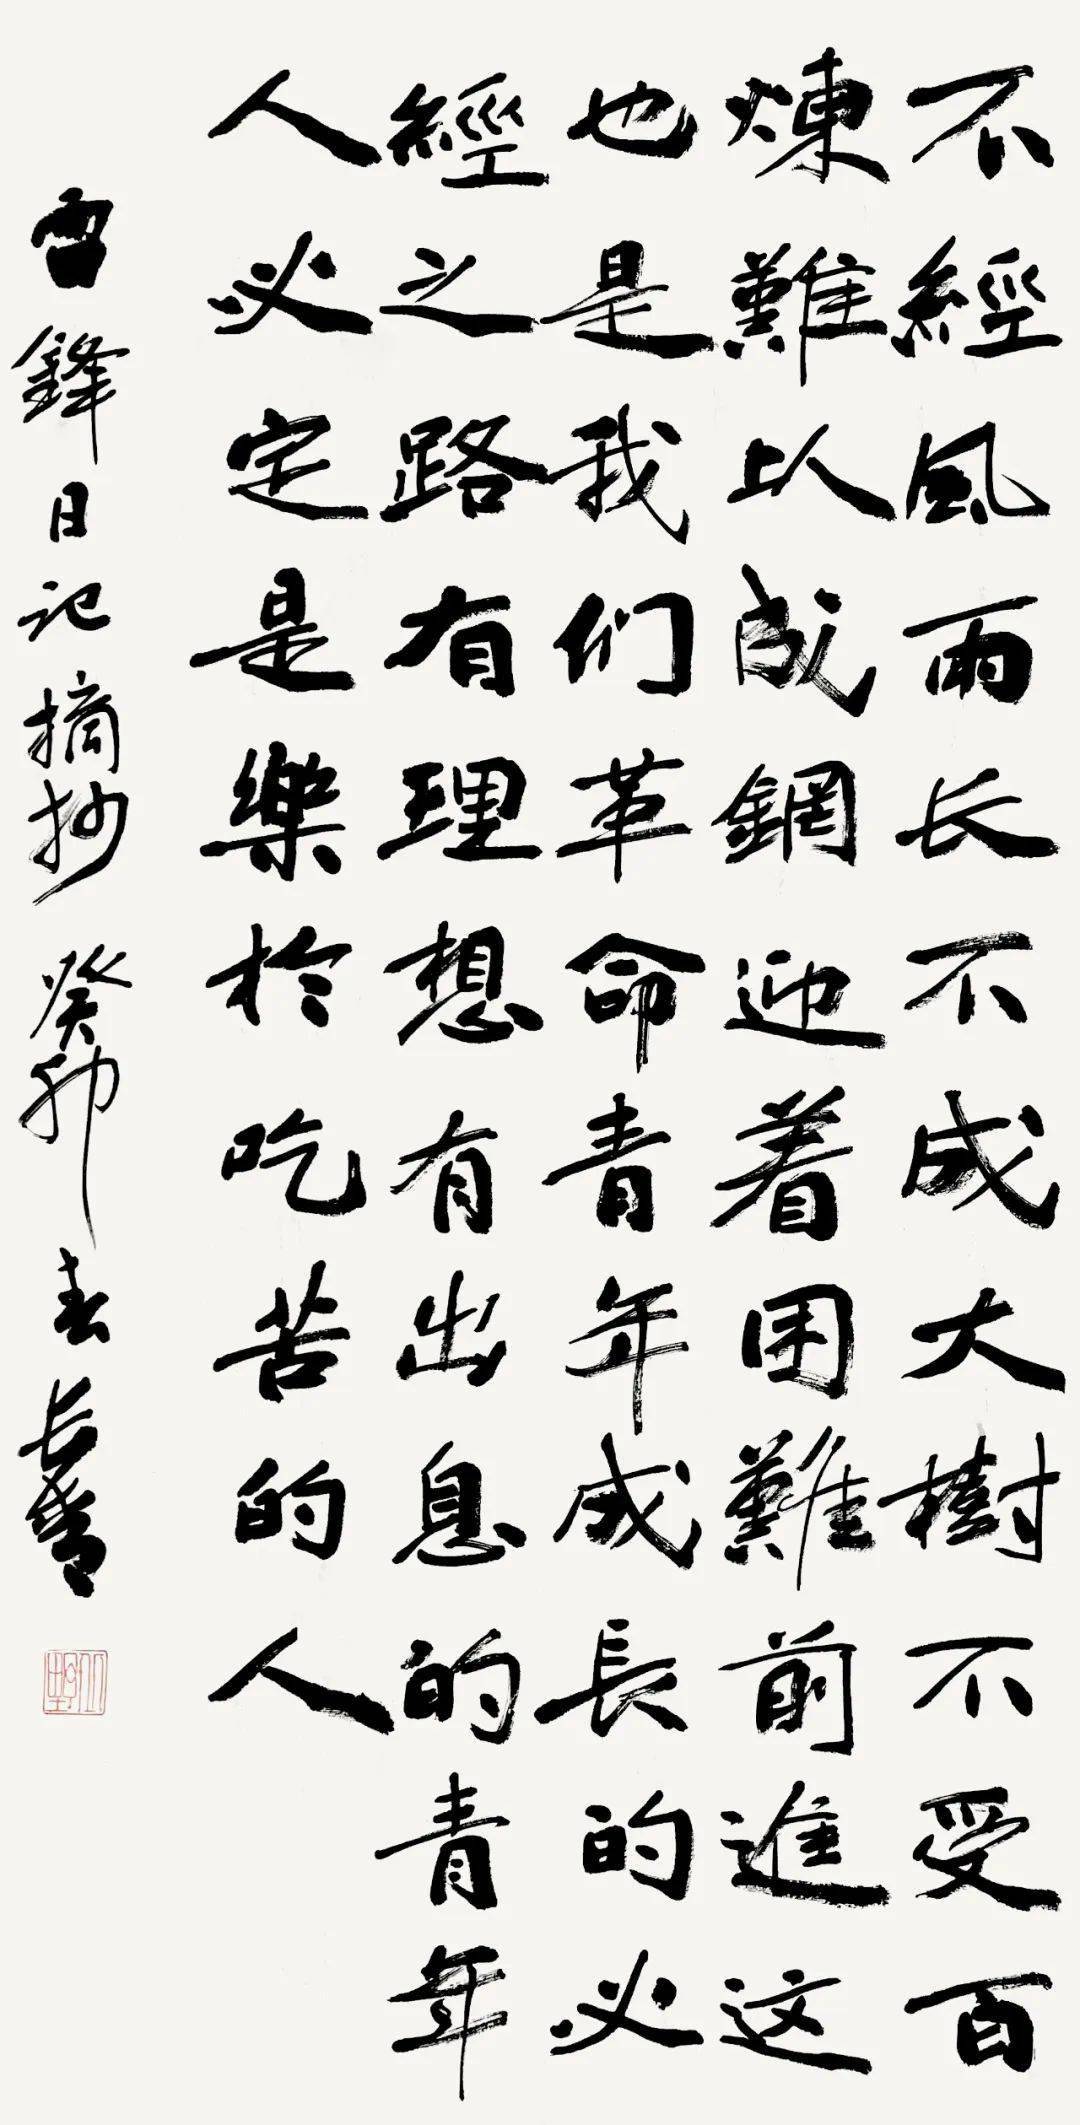 不經風雨长不成大樹不受百
煉難以成鋼迎着困難前進这
也是我们革命青年成長的必
經之路有理想有出息的青年
人必定是樂於吃苦的人
雷鋒日记摘抄癸卯春长